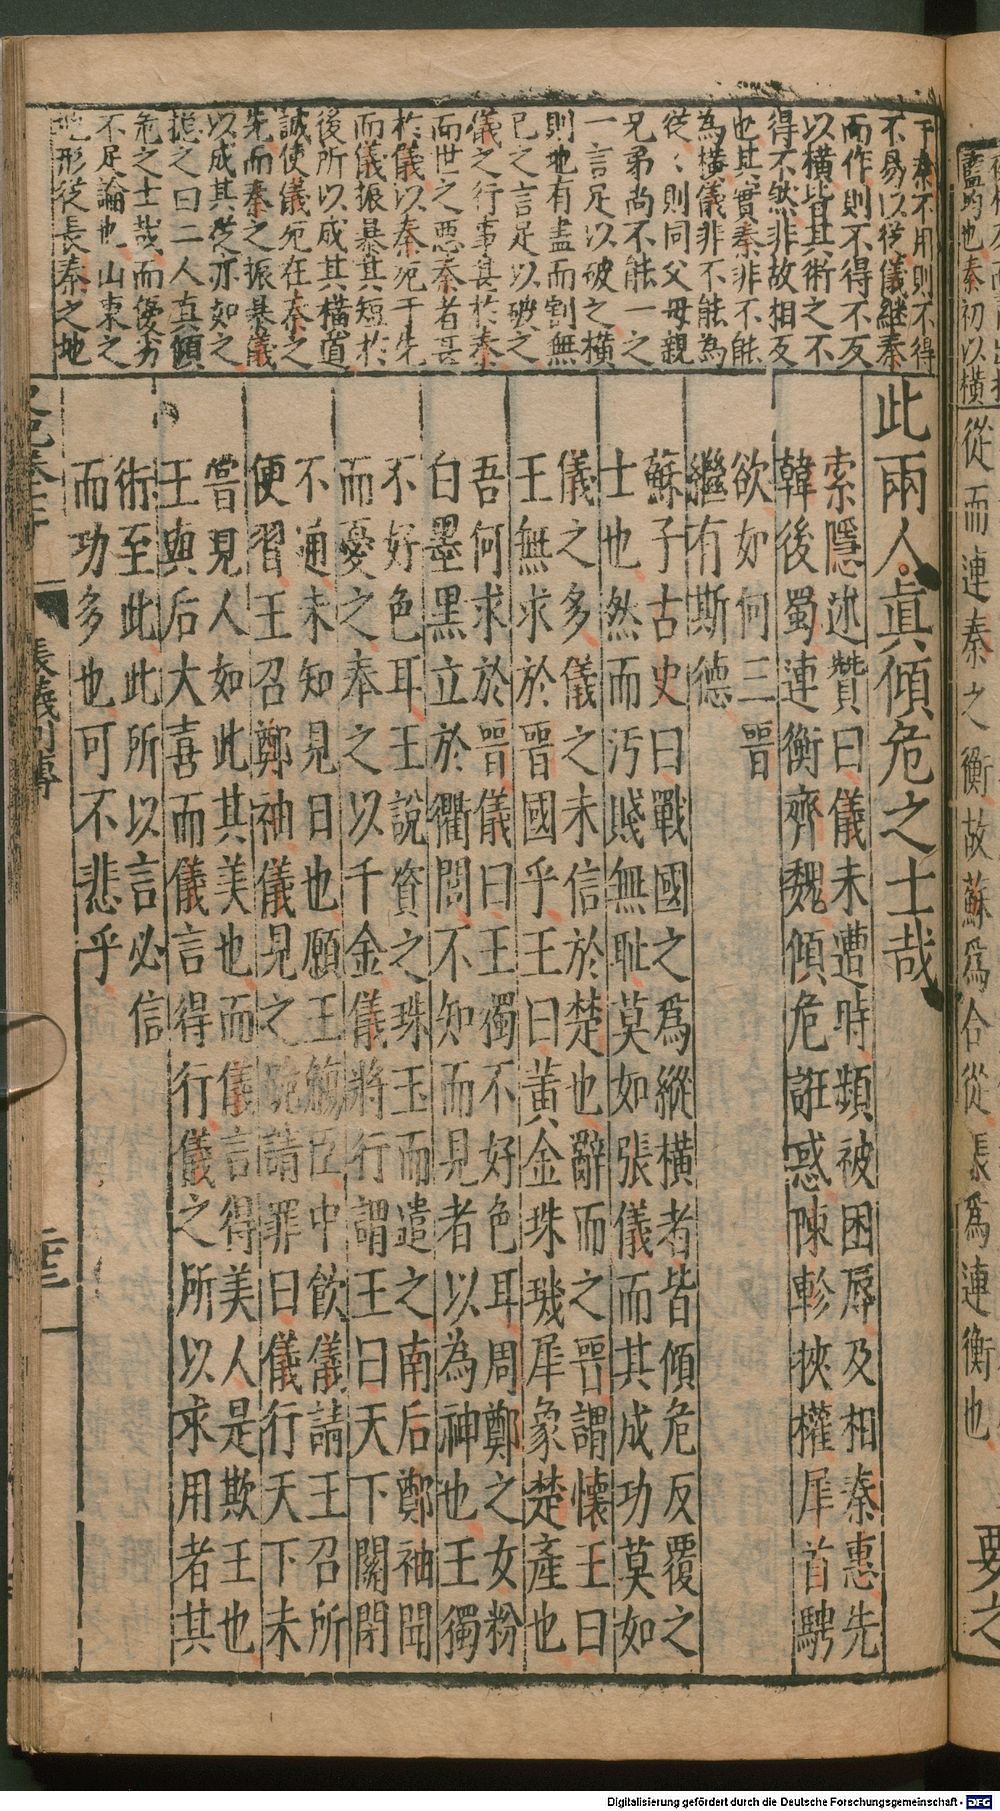 于秦不用則不得
不易以從儀繼秦
而作則不得不反
以橫皆其術之不
得不然非故相反
也其實秦非不能
為橫儀非不能為
從從則同父母親
兄弟尚不能一之
一言足以破之橫
則地有盡而割無
已之言足以破之
儀之行事甚於秦
而世之惡秦者甚
於儀以秦死于先
而儀振暴其短於
後所以成其橫道
誠使儀死在秦之
先而秦之振暴儀
以成其從亦如之
摠之曰二人真傾
危之士哉而優劣
不足論也山東之
地形從長秦之地
此兩人真傾危之士哉
索隱述贊曰儀未遭時頻被困辱及相秦惠先
韓後蜀連衡齊魏傾危誑惑陳軫挾權犀首騁
欲如何三晉
繼有斯德
蘇子古史曰戰國之為縱橫者皆傾危反覆之
士也然而污賤無耻莫如張儀而其成功莫如
儀之多儀之未信於楚也辭而之晉謂懷王曰
王無求於晉國乎王曰黃金珠璣犀象楚產也
吾何求於晉儀曰王獨不好色耳周鄭之女粉
白墨黑立於衢閭不知而見者以為神也王獨
不好色耳王說資之珠玉而遣之南后鄭袖聞
而憂之奉之以千金儀將行謂王曰天下關閉
不通未知見日也願王觴臣中飲儀請王召所
便習王召鄭袖儀見之跪請罪曰儀行天下未
嘗見人如此其美也而儀言得美人是欺王也
王與后大喜而儀言得行儀之所以求用者其
術至此此所以言必信
而功多也可不悲乎
張儀列傳
二十三
從而連秦之衡故蘇為合從張為連衡也
要之
也秦初以橫
Digitalisierung gefördert durch die Deutsche Forschungsgemeinschaft - DFG